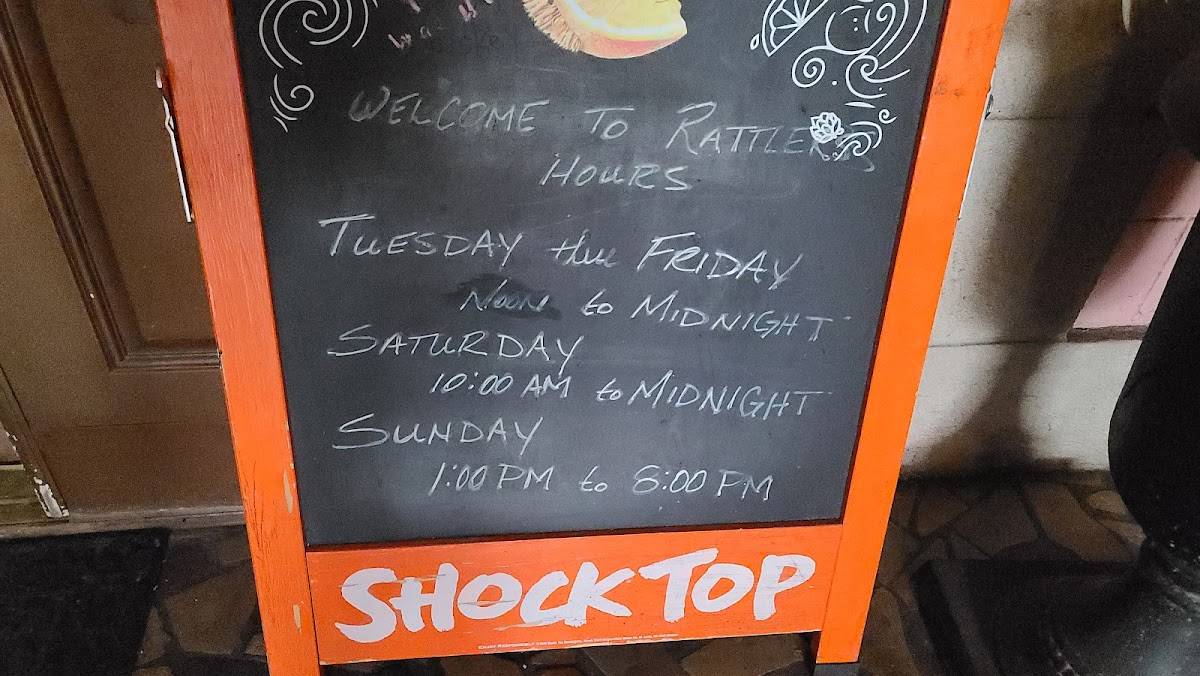 WELCOME TO RATTLERS
HOURS
TUESDAY thru FRIDAY
NOON to MIDNIGHT
SATURDAY
10:00 AM to MIDNIGHT
SUNDAY
1:00 PM to 8:00 PM
SHOCK TOP